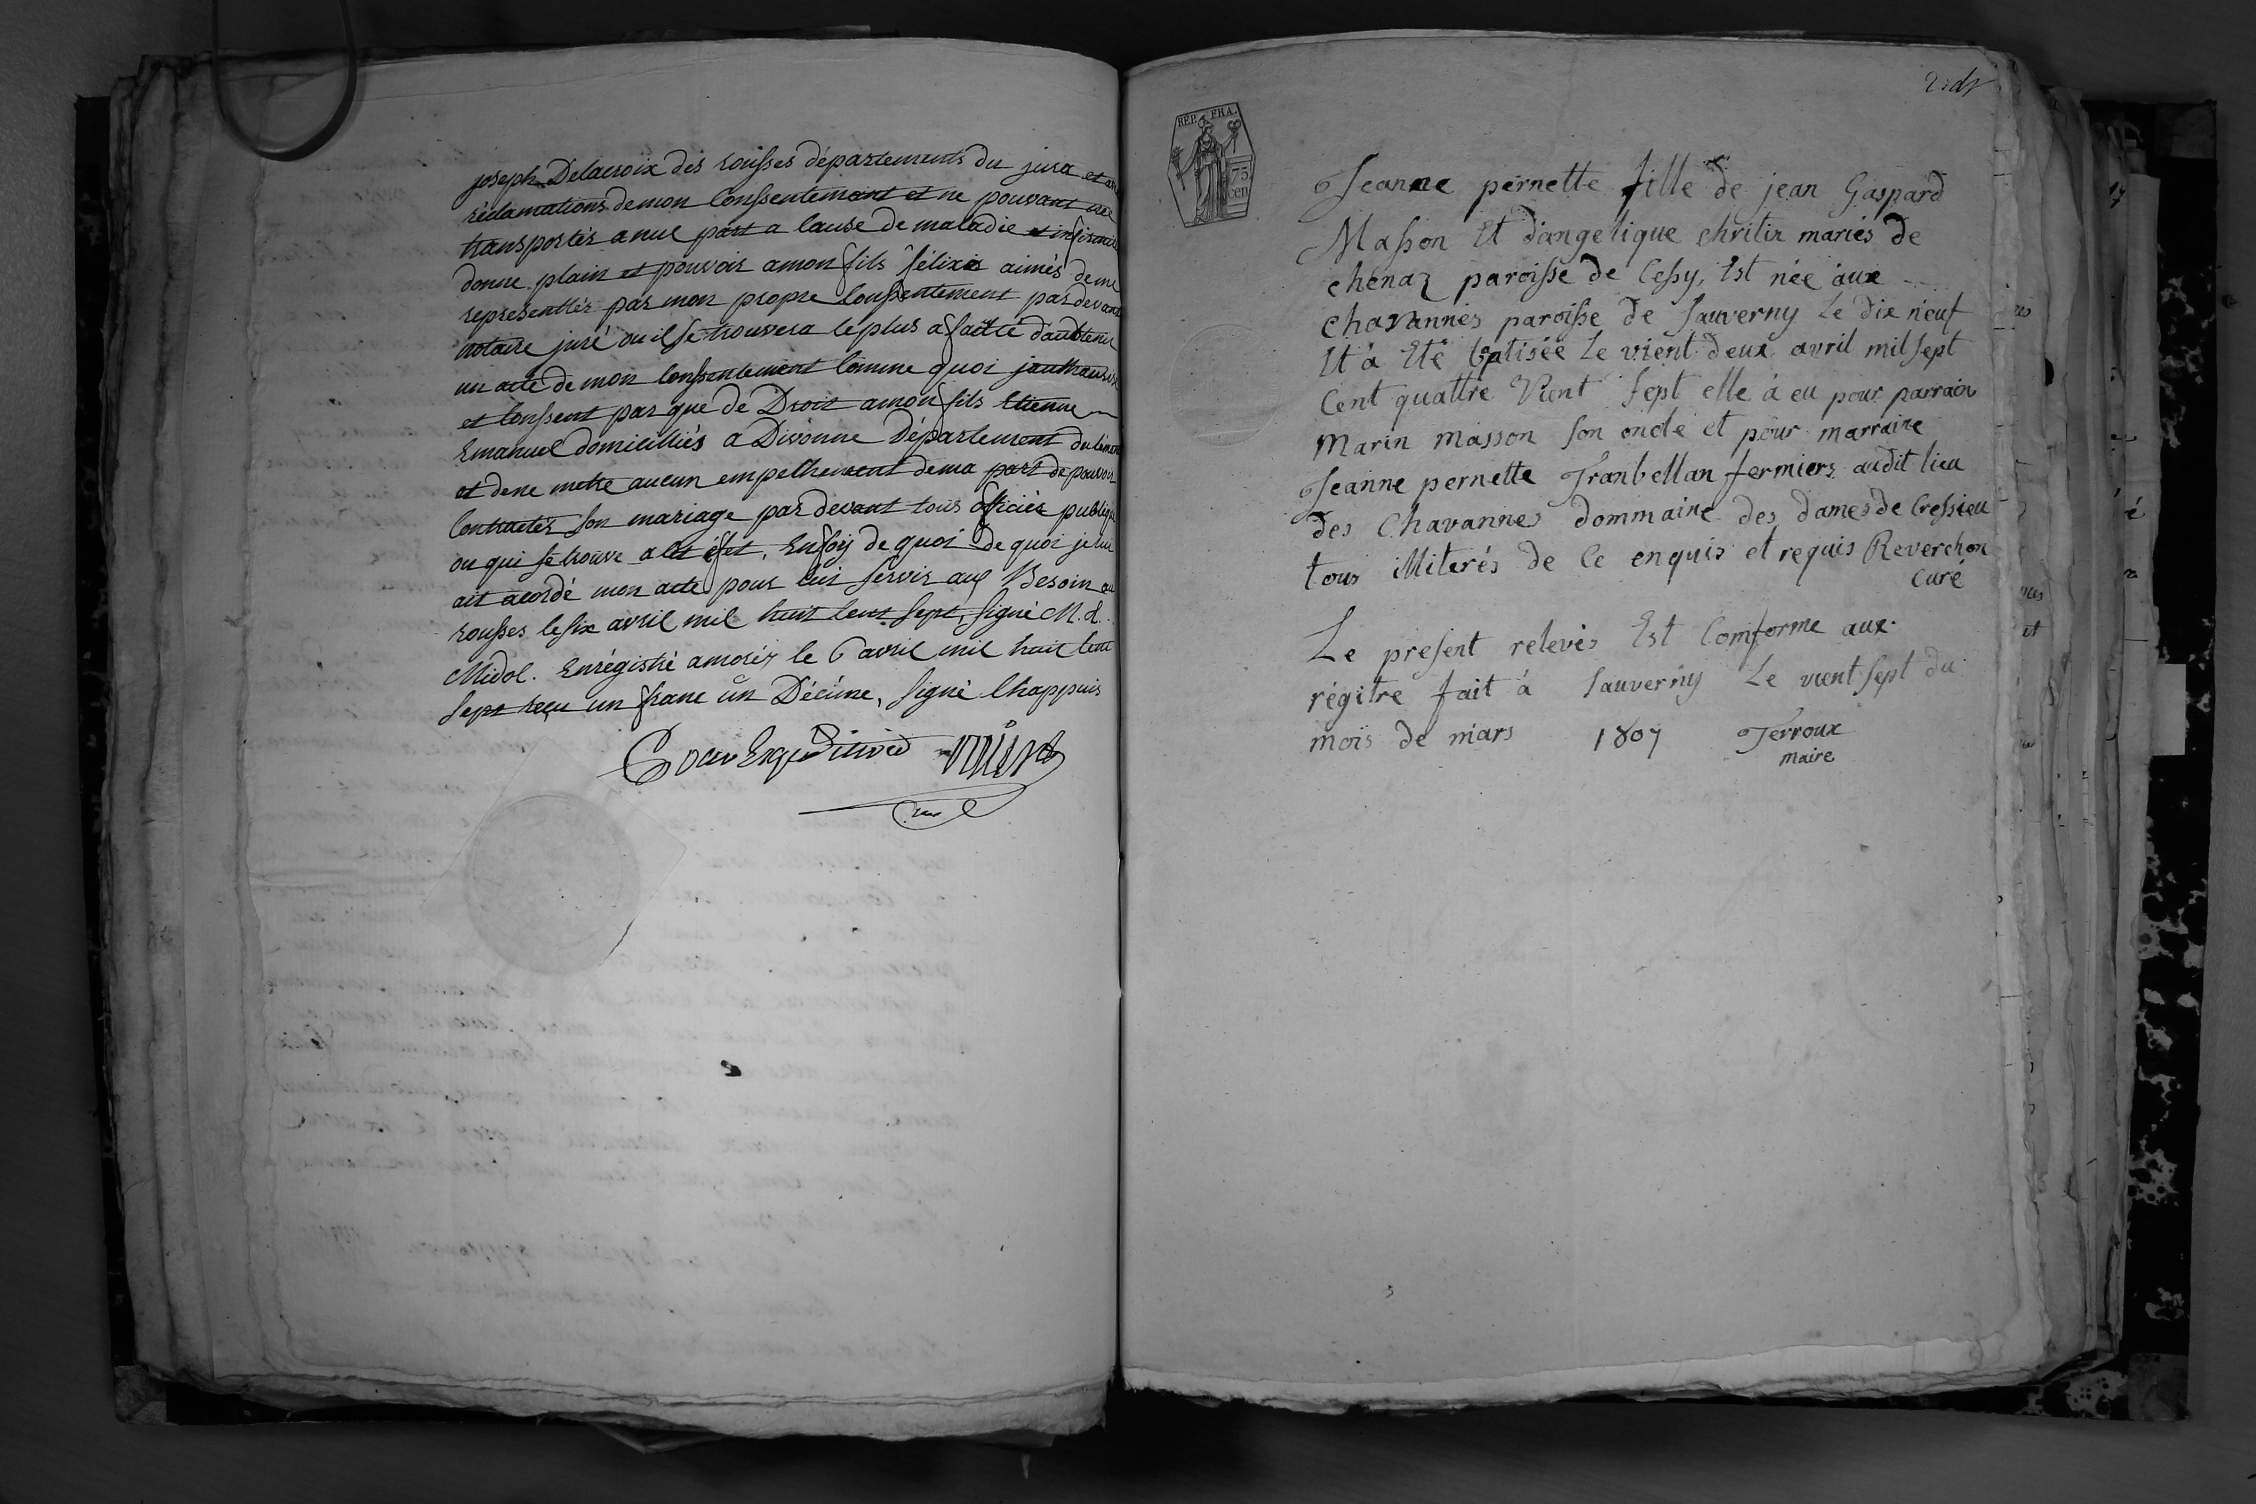 joseph Delacroix des rousses départements du jura et
réclamations de mon Conssentemant et ne pouvant me
transportér a nul part a Cause de maladie et infirmité
donne plain et pouvoir a mon fils félixe aimés de me
representtér par mon propre Conssentement par devant
notaire juré ou il se trouvera le plus a faitte
un acte de mon Conssentement Comme quoi
et Conssent par que de Droit a mon fils Etienne
Emanuel domicilliés a Divonne Département du léman
et de ne mettre aucun empechement de ma part de pouvoir
Contractér son mariage par devant tous officiés publique
ou qui se trouve a cet éfet, En foy de quoi de quoi je lui
ait acordé mon acte pour lui servir aux Besoin au
rousses le six avril mil huit Cent sept, signé M. d.
Midol. Enrégistré a moréz le 6 avril mil huit Cent
sept reçu un franc un Décime, signé Chappuis
Pour Expédition
REP. FRA.
75
cen
Jeanne pernette fille de jean Gaspard
Masson Et d'angelique chritin mariés de
chenaz paroisse de Cessy, Est née aux
chavannes paroisse de Sauverny Le dix neuf
Et à Eté batisée Le vient deux avril mil sept
Cent quattre Vient sept elle à eu pour parrain
Marin masson son oncle et pour marraine
Jeanne pernette Tranbellan fermiers audit lieu
des Chavannes dommaine des dames de Cressieu
tous illiterés de Ce enquis et requis Reverchon
Curé
Le present relevés Est Comforme aux
régitre fait à Sauverny Le vient sept du
mois de mars 1807 Terroux
maire